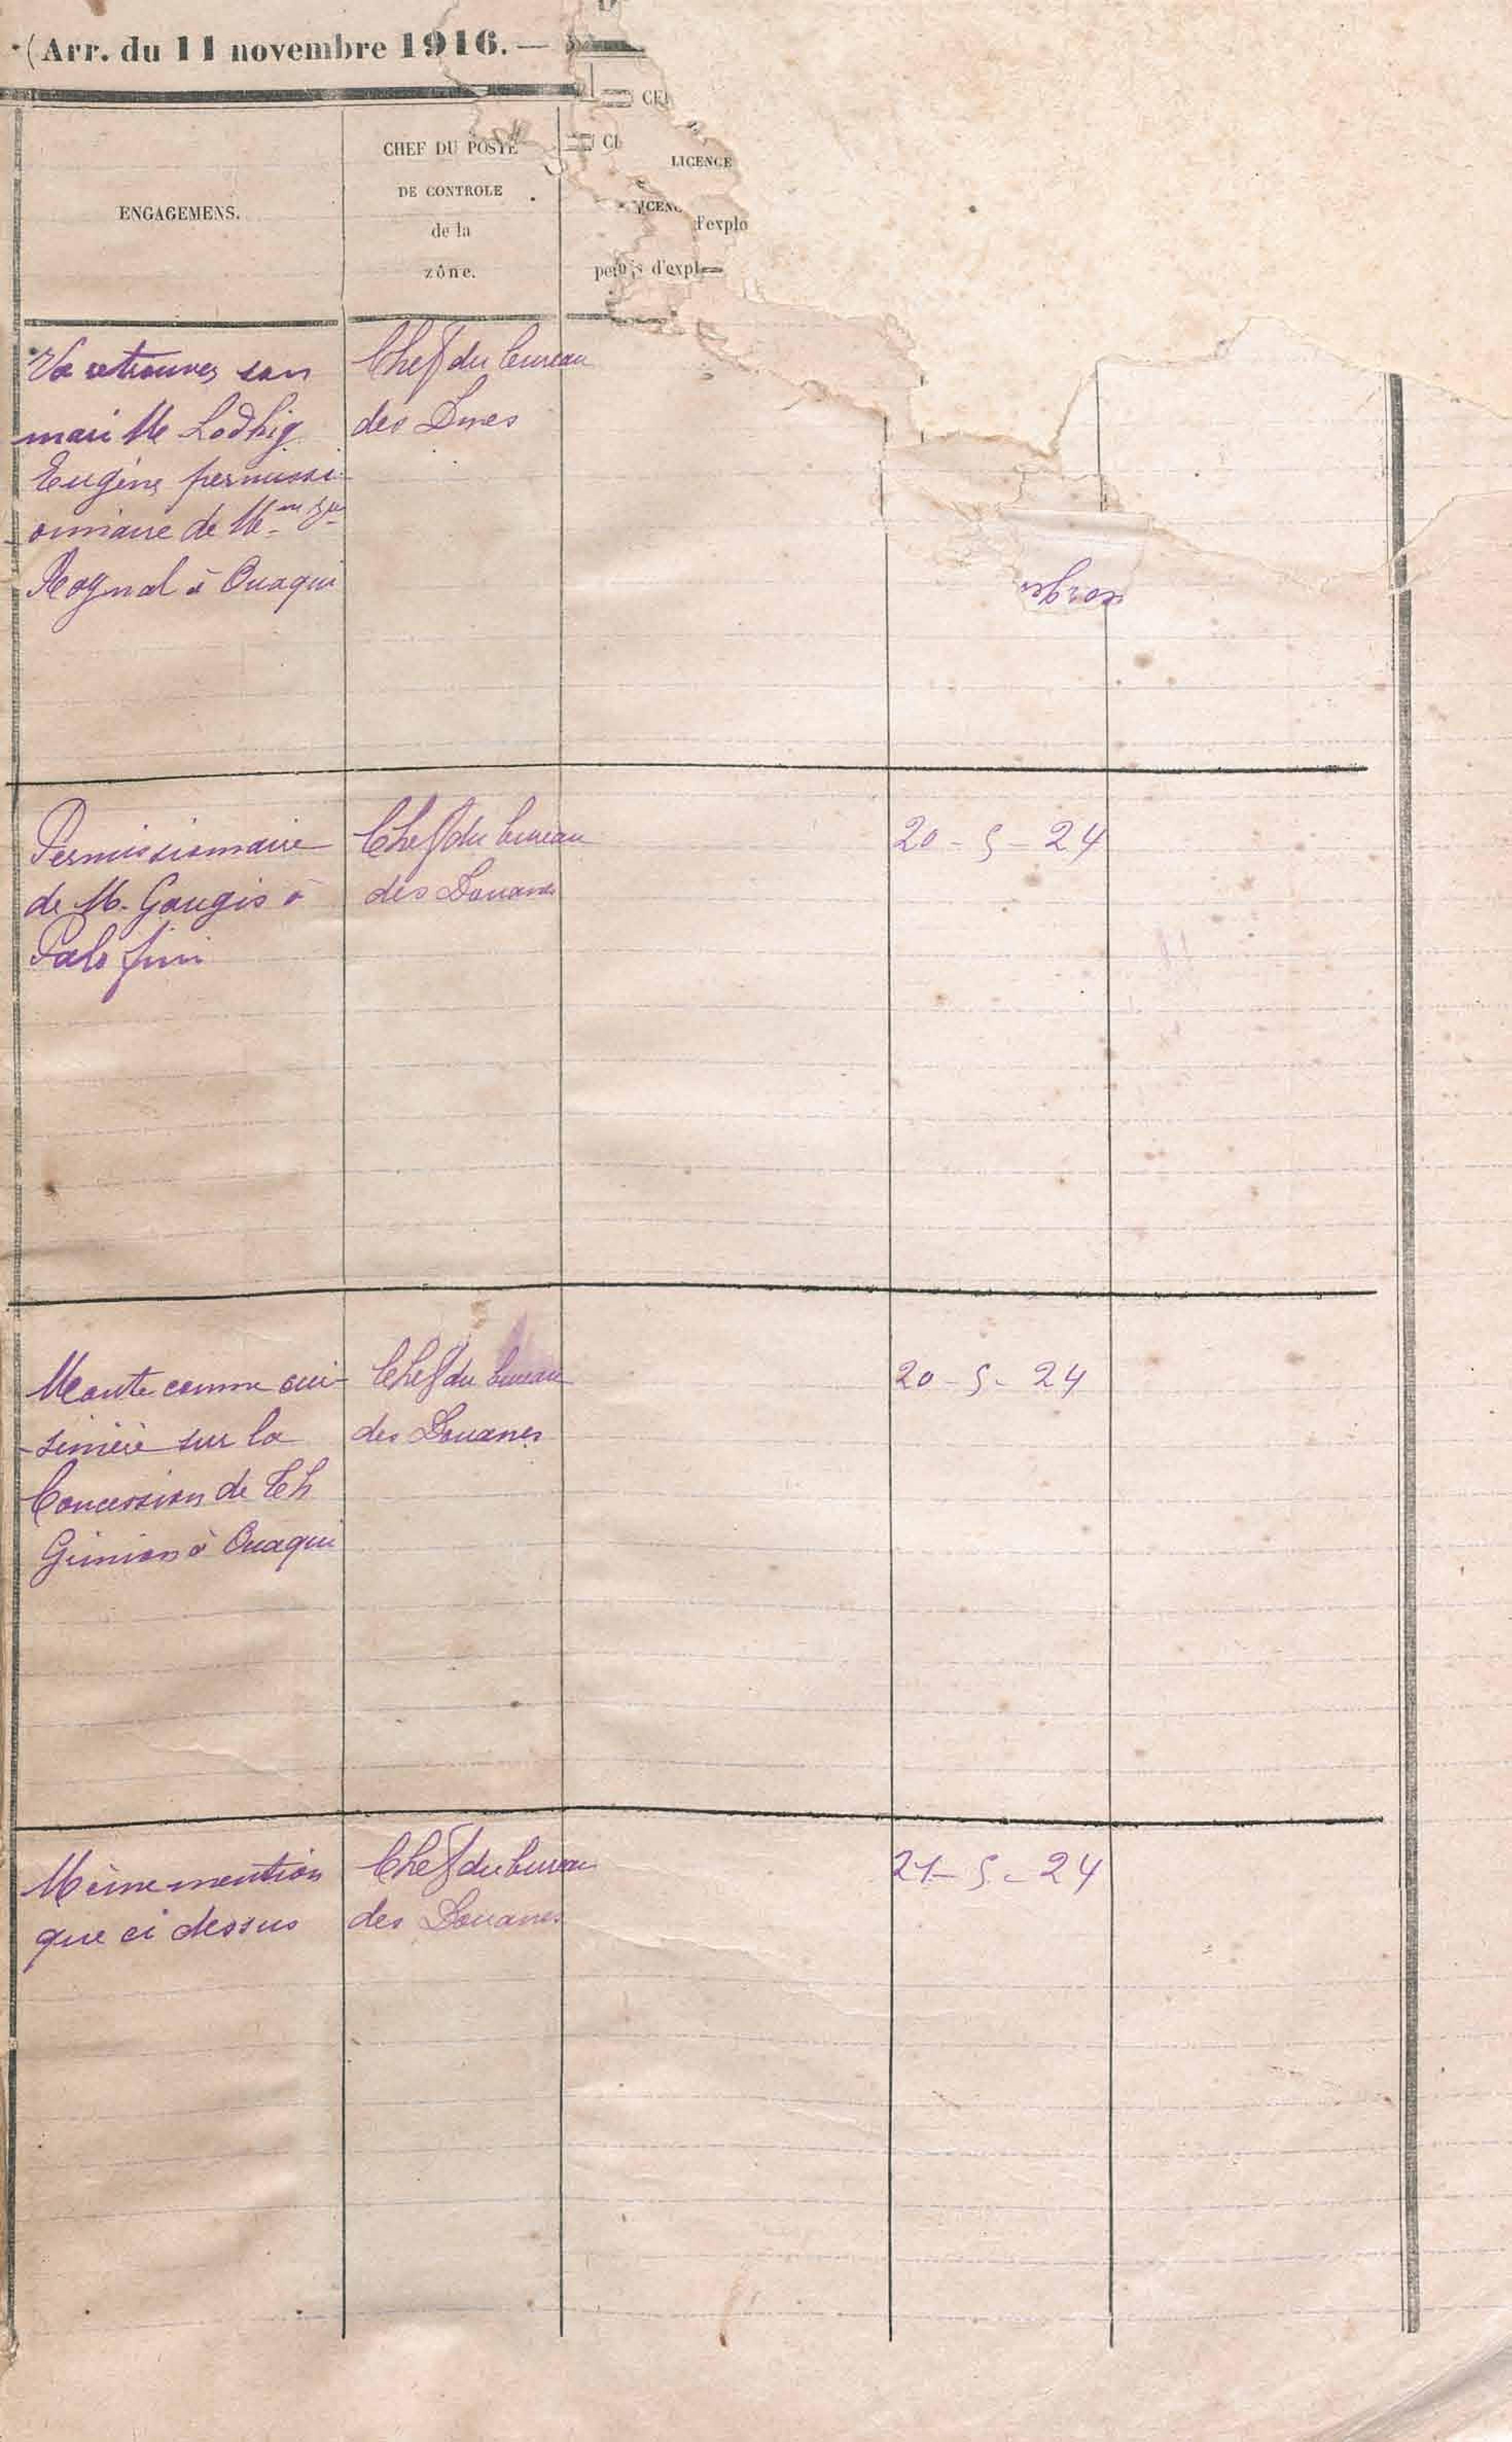 (Arr. du 11 novembre 1916. —
ENGAGEMENS.
CHEF DU POSTE
DE CONTROLE
de la
zône.
CE
CE
LICENCE
l'explo
permis d'expl
Va retrouver son
mari M Lodhig
Eugène permissi-
onnaire de M
à Ouaqui
Chef du bureau
des
Permissionnaire
de M. Gougis à
Palofini
Chef du bureau
des Douanes
20 - 5 - 24
Monte comme cui-
-sinière sur la
Concession de Th
à Ouaqui
Chef du bureau
des Douanes
20 - 5 - 24
Même mention
que ci dessus
Chef du bureau
des Douanes
21 - 5 - 24